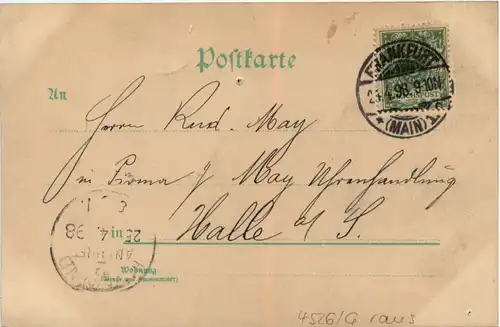 Postkarte
FRANKFURT
4.98. 9-10N.
*(MAIN)1.
An
Herrn Rud. May
in Firma J. May Uhrenhandlung
in Halle a/S.
25 4. 98
Wohnung
(Straße und Hausnummer)
4526/G raus